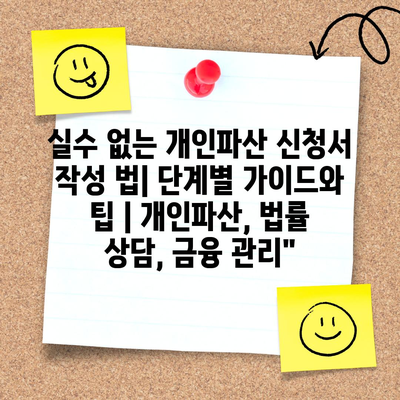 실수 없는 개인파산 신청서
작성 법| 단계별 가이드와
팁 | 개인파산, 법률
상담, 금융 관리"